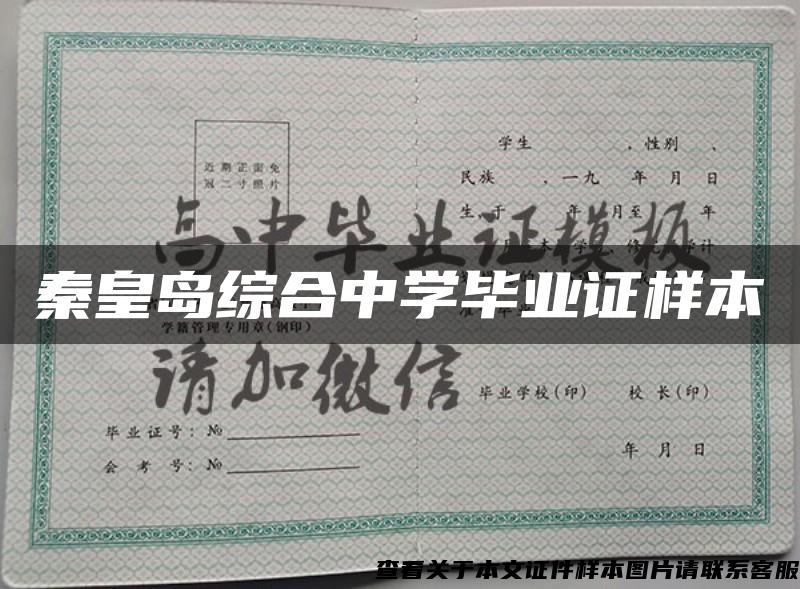 近期正面免
冠二寸照片
学籍管理专用章(钢印)
毕业证号：№
会考号：№
学生 ，性别 、
民族 ，一九 年 月 日
生，于 年 月至 年
毕业学校(印) 校长(印)
年 月 日
高中毕业证模板
秦皇岛综合中学毕业证样本
请加微信
查看关于本文证件样本图片请联系客服